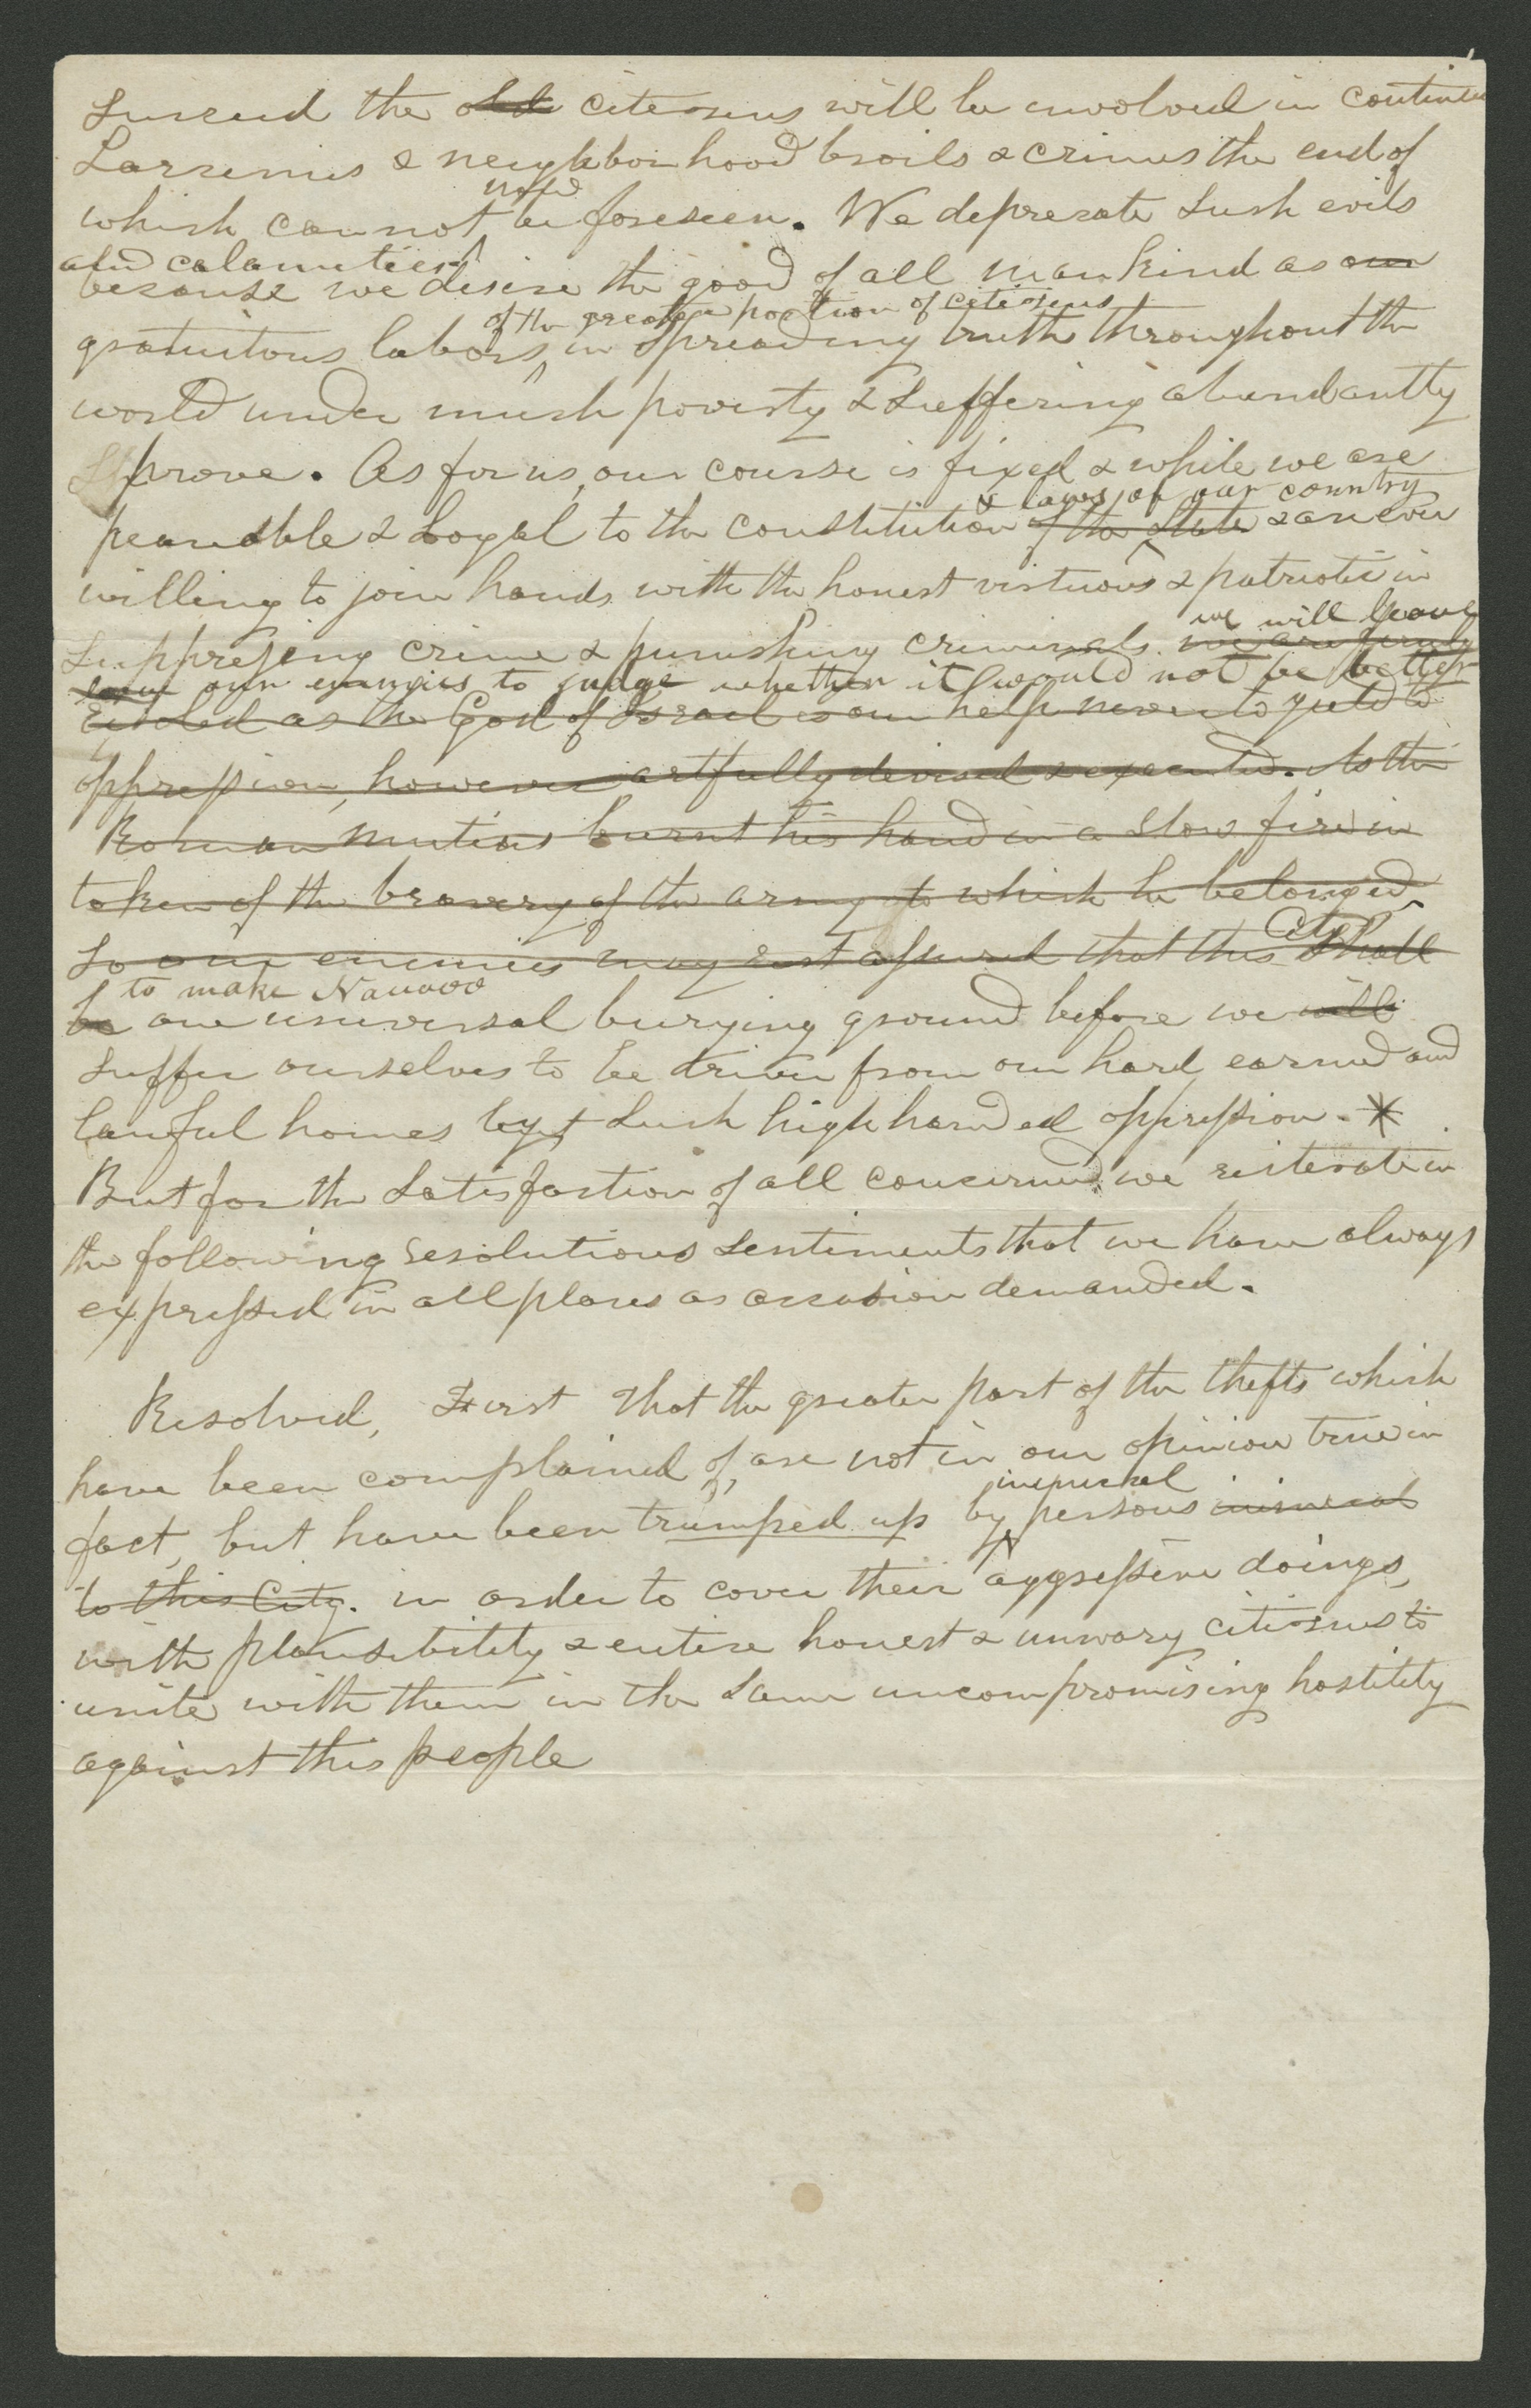 succeed the old citizens will be involved in continued
Larcenies & neighborhood broils & crimes the end of
now
which cannot be foreseen. We deprecate such evils
and calamities
because we desire the good of all mankind as our
of the greater portion of citizens
gratuitous labors in spreading truth throughout the
world under much poverty & suffering abundantly
prove. As for us, our course is fixed & while we are
& laws of our country
peaceable & Loyal to the constitution of the State & are ever
willing to join hands with the honest virtuous & patriotic in
we will leave
suppressing crime & punishing criminals. we are firmly
our enemies to judge whether it would not be better
resolved as the God of Israel is our help never to yield to
oppression, however artfully devised & executed. As the
Roman Mutius burnt his hand in a slow fire in
token of the bravery of the army to which he belonged,
City
so our enemies may rest assured that this shall
to make Nauvoo
be one universal burying ground before we will
suffer ourselves to be driven from our hard earned and
lawful homes by such high handed oppression. *
But for the satisfaction of all concerned we reiterate in
the following resolutions sentiments that we have always
expressed in all places as occasion demanded.
Resolved, First That the greater part of the thefts which
have been complained of, are not in our opinion true in
inimical
fact, but have been trumped up by persons inimical
to this City. in order to cover their aggressive doings,
with plausibility & entice honest & unwary citizens to
unite with them in the same uncompromising hostility
against this people